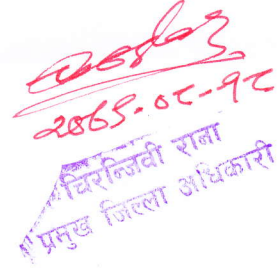 २०६९-०८-१८
चिरन्जिवी राना
प्रमुख जिल्ला अधिकारी